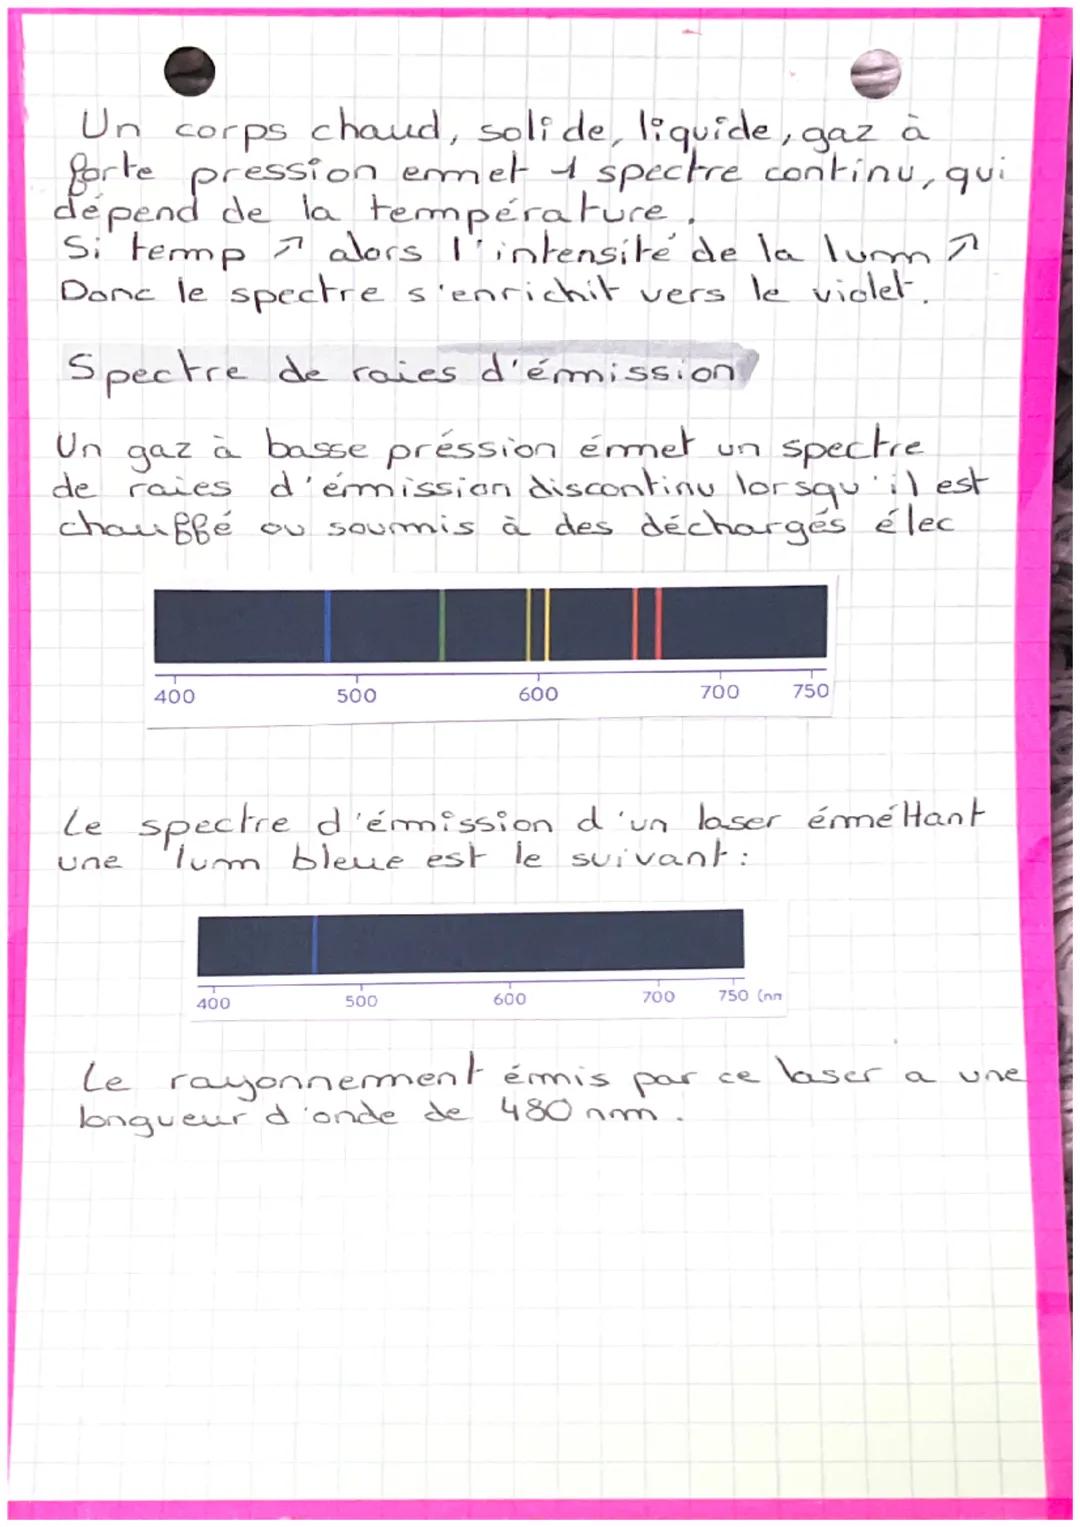 Un corps chaud, solide, liquide, gaz à
forte pression emmet 1 spectre continu, qui
dépend de la température.
Si temp ↗ alors l'intensité de la lum ↗
Donc le spectre s'enrichit vers le violet.
Spectre de raies d'émission
Un gaz à basse préssion émet un spectre
de raies d'émission discontinu lorsqu'il est
chauffé ou soumis à des décharges élec
400 500 600 700 750
Le spectre d'émission d'un laser émméttant
une lum bleue est le suivant :
400 500 600 700 750 (nm
Le rayonnement émis par ce laser a une
longueur d'onde de 480 nm.